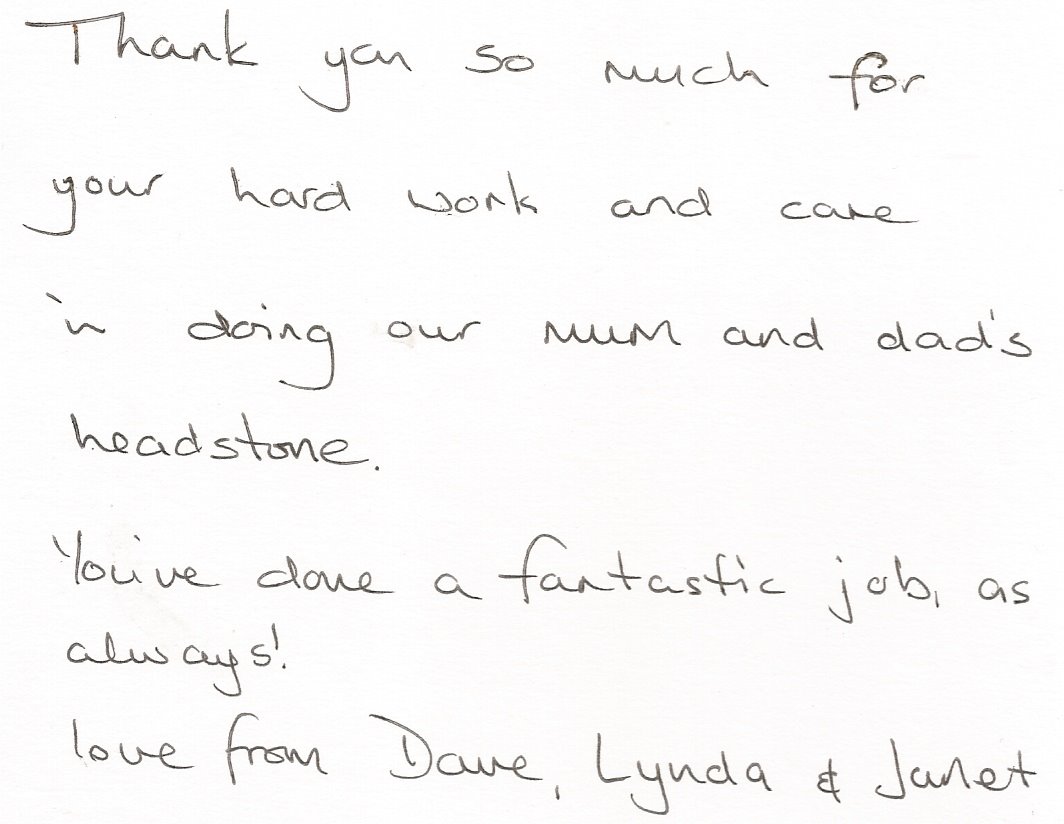 Thank you so much for
your hard work and care
in doing our mum and dad's
headstone.
You've done a fantastic job, as
always!
love from Dave, Lynda & Janet